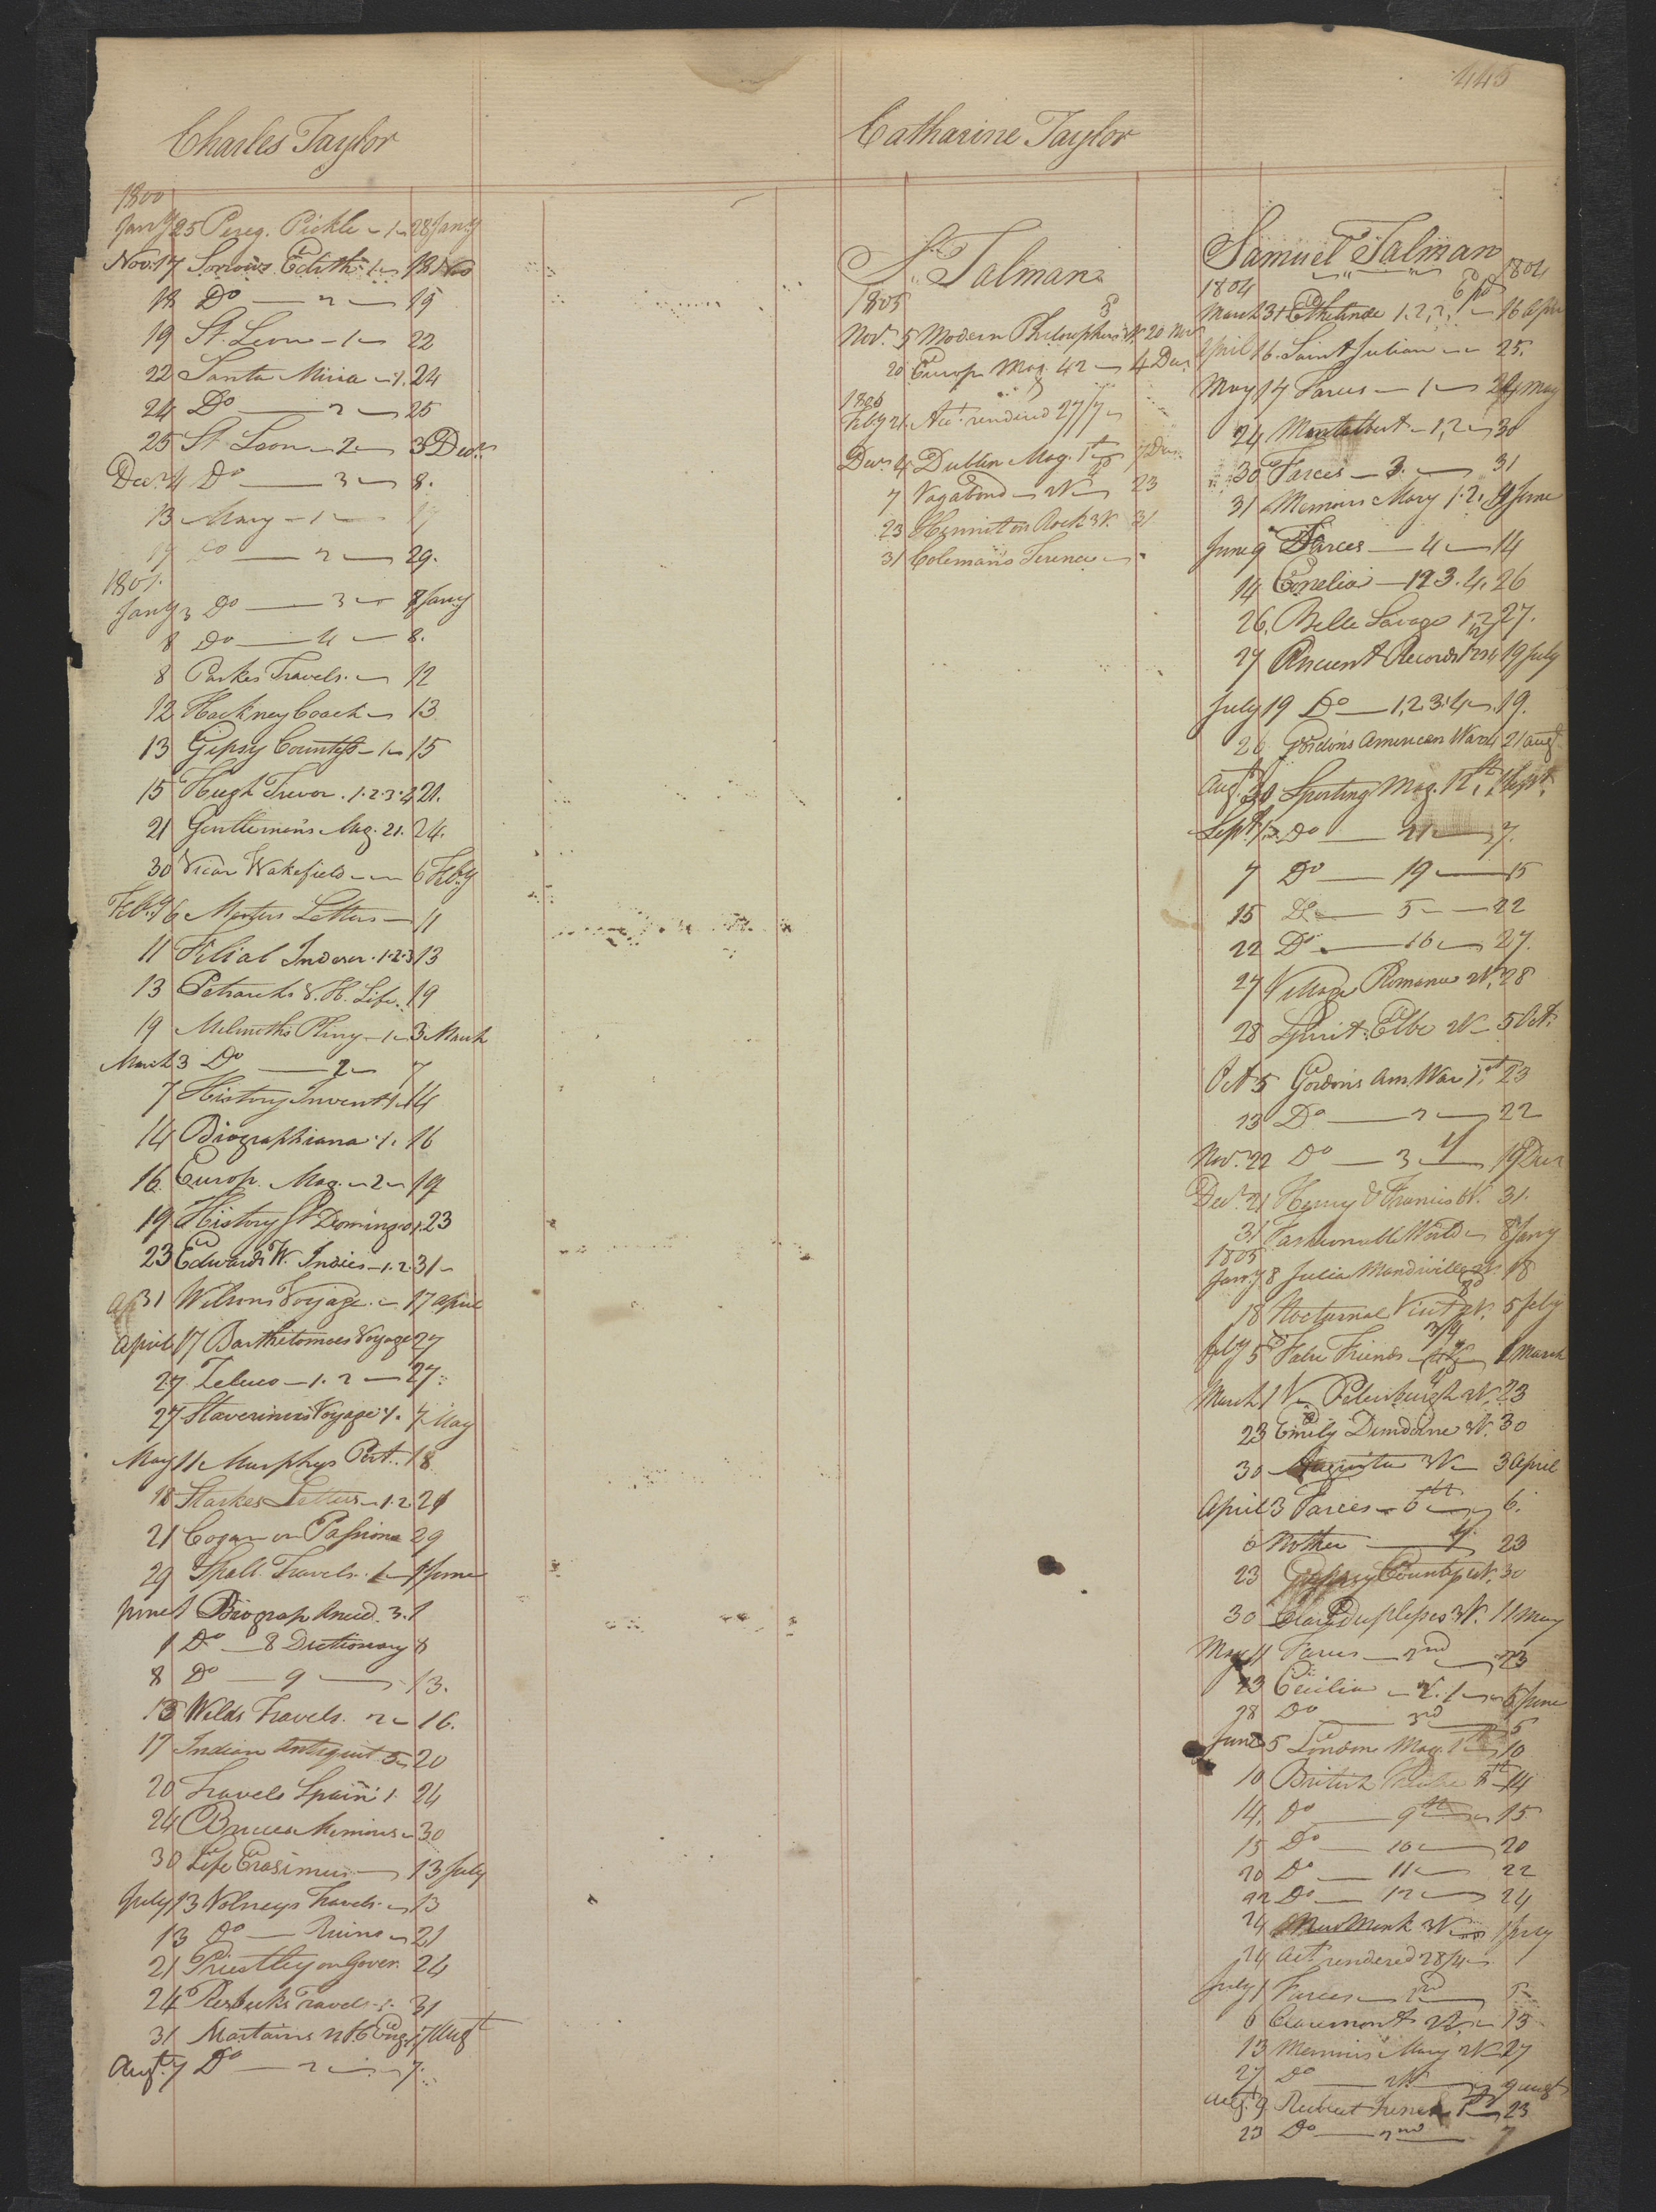 445
Charles Taylor
1800
Jany 25 Pereg. Pickle - 1 - 28 Jany
Nov. 17 Sorrows Edith 1 - 18 Nov
18 Do - 2 - 19
19 St. Leon - 1 - 22
22 Santa Maria - 1. 24
24 Do - 2 - 25
25 St. Leon - 2 - 3 Decr.
Decr. 4 Do - 3 - 8.
13 Mary - 1 -
19 Do - 2 - 29.
1801.
Jany 3 Do - 3 - 8 Jany
8 Do - 4 - 8.
8 Parkes Travels. - 12
12 Hackney Coach - 13
13 Gipsy Countess - 1 - 15
15 Hugh Trevor. 1.2.3.4 21.
21 Gentlemen's Mag. 21. 24.
30 Vicar Wakefield - 6 Feby
Feby 6 Letters - 11
11 Filial Indiser. 1.2.3 13
13 Petrarchs V. H. Life. 19
19 Melmoth's Pliny - 1 - 3 March
March 3 Do - 2 - 7
7 History Invent 1. 14
14 Biographiana. 1. 16
16 Europ. Mag. - 2 - 19
19 History St Domingo 1. 23
23 Edwards W. Indies - 1. 2. 31 -
31 Wilsons Voyage. - 17 April
April 17 Barthelomoes Voyage 27
27 Zeluco - 1. 2 - 27.
27 Stavorinus Voyage 1. 7 May
May 11 Murphys Port. 18
18 Starkes Letters - 1. 2 21
21 Cogan on Passions 29
29 Spall. Travels. 1 - 1 June
June 1 Biograp Anecd. 3. 1
1 Do - 8 Dictionary 8
8 Do - 9 - 13.
13 Wilds Travels. 2 - 16.
17 Indian Antiquit. 5 - 20
20 Travels Spain 1. 24
24 Bruces Memoirs - 30
30 Life Erasimus - 13 July
July 13 Volneys Travels. - 13
13 Do - Ruins - 21
21 Priestley on Gover. 24
24 Travels 1. 31
31 Martains 17 Augt
Augt. 7 Do - 2 - 7.
Catharine Taylor
S. Talman
1805
Nov. 5 Modern Philosophers 20 Nov
20 Europ Mag. 42 - 4 Decr.
1806
Feby 21. Act. rendered 27/7 -
Decr. 4 Dublin Mag. 1st 7 Decr.
7 Vagabond - 2V 23
23 Hermit on Rock 3V. 31
31 Coleman's Terence -
Samuel T Talman
1804 1804
March 31 Ethelinde 1. 2, 3, 16 Apr
April 16. Saint Julian - 25.
May 14 Farces - 1 - 24 May
24 Montalbert - 1, 2 - 30
30 Farces - 3. - 31
31 Memoirs Mary 1. 2. 9 June
June 9 Farces - 4 - 14
14 Conelia - 1 2 3. 4. 26
26. Belle Savage 1,2 27.
27 Ancient Records 19 July
July 19 Do - 1, 2. 3. 4 - 19.
26 Gordons American War 21 Augt
Augt. 30 Sporting Mag. 12th. 1 Sept.
Sept. Do - 21 - 7.
7 Do - 19 - 15
15 Do - 5 - 22
22 Do - 16 - 27.
27 Village Romance 2V. 28
28 Spirit. Elbe 2V - 5 Oct.
Oct 5 Gordons Am. War 1st 23
23 Do - 2 - 22
Nov. 22 Do - 3 - 19 Decr
Decr. 21 Henry & Francis 31.
31 Fashionable World - 8 Jany
1805
Jany 8 Julia Mandiville 2V. 18
18 Nocturnal Visit 5 Feby
Feby 5 False Friends 1 March
March 1 Petersburgh 2V. 23
23 Emily Dundorne 3V. 30
30 Augusta 3V - 3 April
April 3 Farces - 6th - 6.
6 Nother - 23
23 Gypsey Countess 30
30 Clara Duplessis 3V. 11 May
May 11 Farces - 2nd - 23
23 Cecilia - V. 1 - 5 June
28 Do - 3rd - 5
June 5 London Mag. 1st 10
10 British Theatre 8th 14
14. Do - 9th - 15
15 Do - 10 - 20
20 Do - 11 - 22
22 Do - 12 - 24
24 New Monk 3V 1 July
24 Act. rendered 28/4 -
July 1 Farces - 2nd - 5
6 Claremont 2V. - 13
13 Memoirs Mary 2V 27
27 Do - 9 Augt
Augt. 9 1st 23
23 Do - 2nd - 7